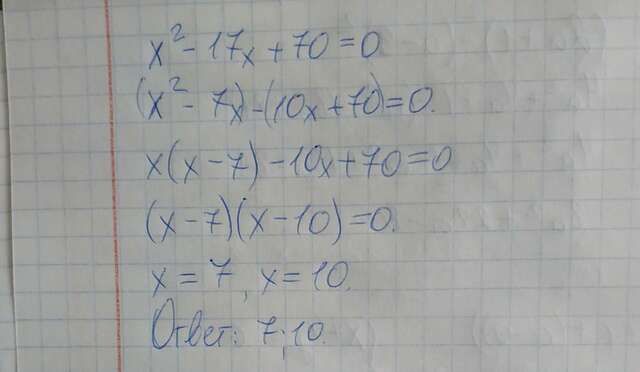 x² - 17x + 70 = 0
(x² - 7x) - (10x + 70) = 0.
x(x - 7) - 10x + 70 = 0
(x - 7)(x - 10) = 0.
x = 7, x = 10.
Ответ: 7; 10.